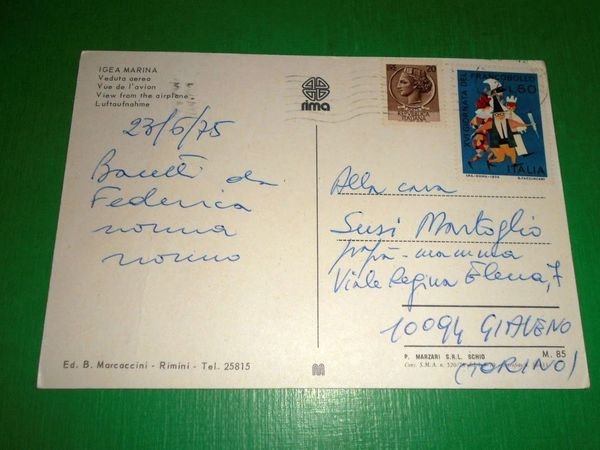 IGEA MARINA
Veduta aerea
Vue de l'avion
View from the airplane
Luftaufnahme
rima
20
REPUBBLICA
ITALIANA
XVI GIORNATA DEL FRANCOBOLLO
L.50
ITALIA
23/6/75
Bacetti da
Federica
nonna
nonno
Alla cara
Susi Martoglio
papà - mamma
Viale Regina Elena, 7
10094 GIAVENO
(TORINO)
Ed. B. Marcaccini - Rimini - Tel. 25815
M
P. MARZARI S.R.L. SCHIO
M. 85